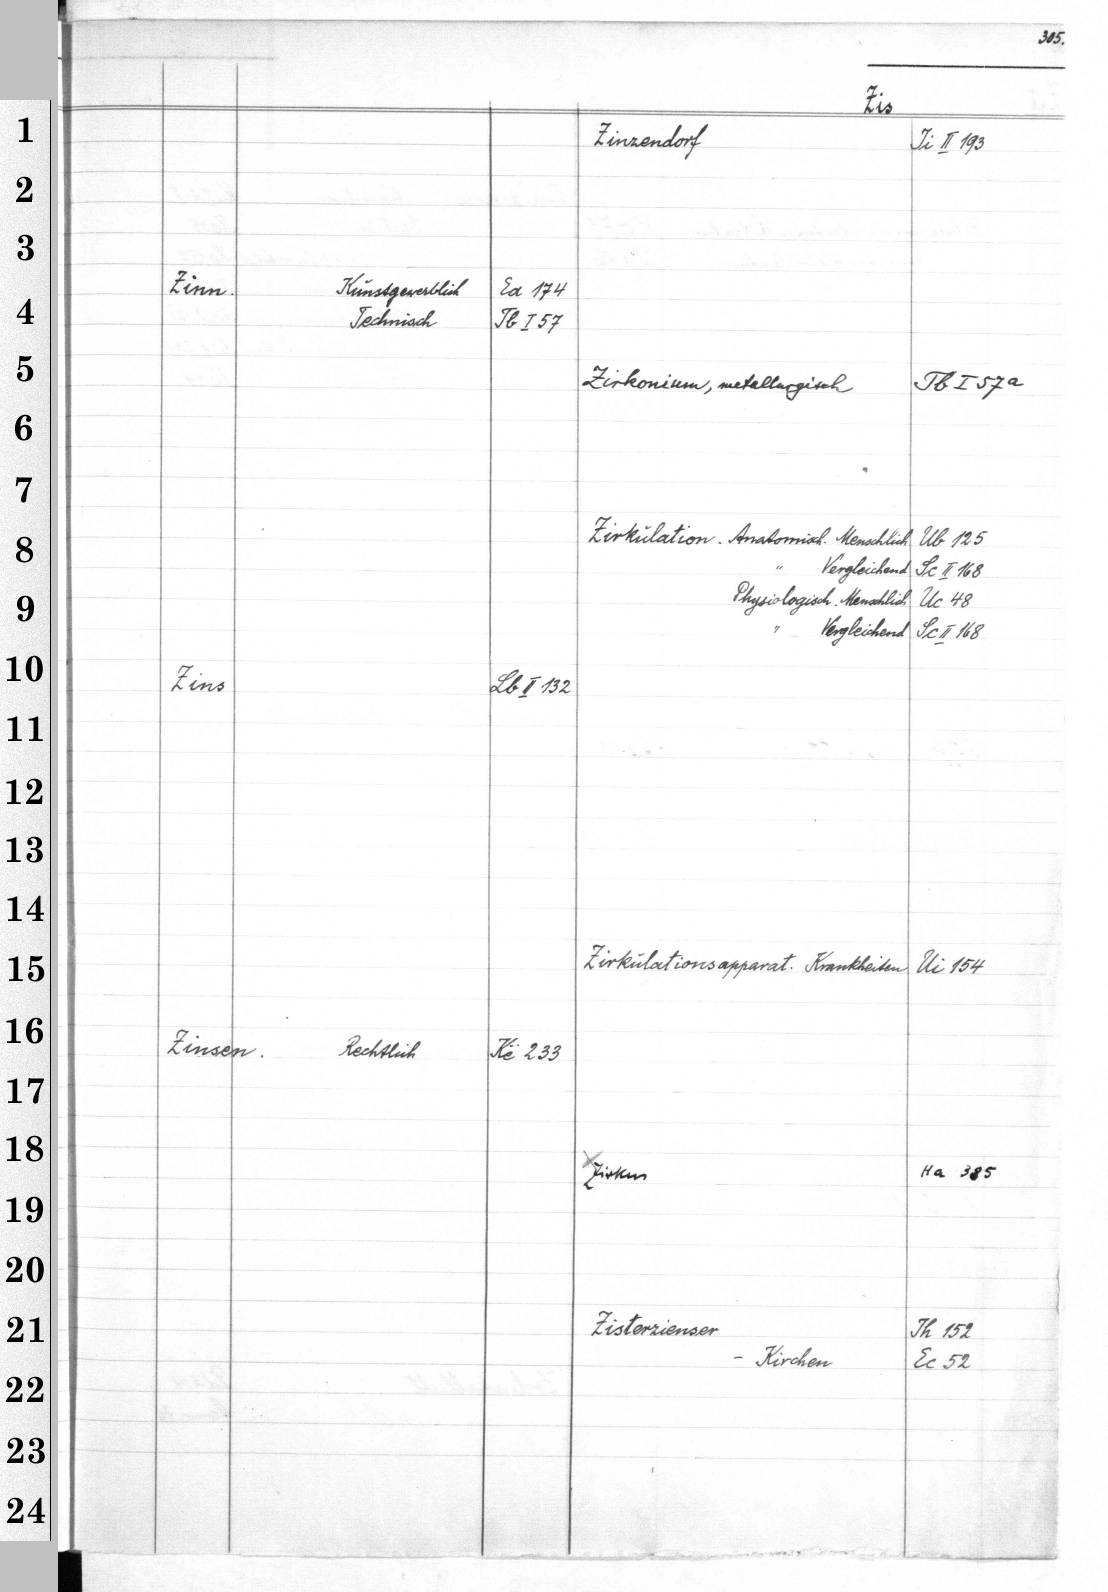 305.
Zis
1
2
3
4
5
6
7
8
9
10
11
12
13
14
15
16
17
18
19
20
21
22
23
24
Zinn. Kunstgewerblich Ed 174
Technisch Tb I 57
Zins Lb II 132
Zinsen. Rechtlich Ke 233
Zinzendorf Ti II 193
Zirkonium, metallurgisch Tb I 57a
Zirkulation. Anatomisch. Menschlich Ub 125
" Vergleichend Sc II 168
Physiologisch. Menschlich Uc 48
" Vergleichend Sc II 168
Zirkulationsapparat. Krankheiten Ui 154
Zirkus Ha 385
Zisterzienser Th 152
- Kirchen Ec 52